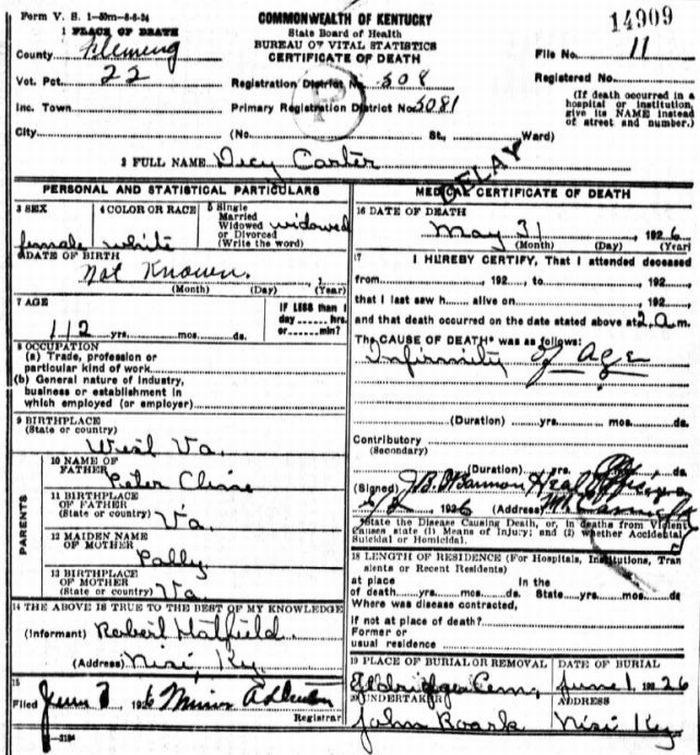 Form V. S. 1-50m-8-8-24
COMMONWEALTH OF KENTUCKY
State Board of Health
BUREAU OF VITAL STATISTICS
CERTIFICATE OF DEATH
14909
1 PLACE OF DEATH
County Fleming
File No. 11
Vot. Pct. 22
Registration District No. 308
Registered No.
Inc. Town
Primary Registration District No. 3081
(If death occurred in a hospital or institution, give its NAME instead of street and number.)
City (No. St., Ward)
2 FULL NAME Dicy Carter
DELAY
PERSONAL AND STATISTICAL PARTICULARS
3 SEX
female
4 COLOR OR RACE
white
5 Single
Married
Widowed
or Divorced
(Write the word)
widowed
6 DATE OF BIRTH
Not Known.
(Month) (Day) (Year)
7 AGE
112 yrs. mos. ds.
IF LESS than 1
day hrs.
or min?
8 OCCUPATION
(a) Trade, profession or
particular kind of work
(b) General nature of industry,
business or establishment in
which employed (or employer)
9 BIRTHPLACE
(State or country)
West Va.
PARENTS
10 NAME OF
FATHER
Peter Cline
11 BIRTHPLACE
OF FATHER
(State or country) Va.
12 MAIDEN NAME
OF MOTHER
13 BIRTHPLACE
OF MOTHER
(State or country) Va.
14 THE ABOVE IS TRUE TO THE BEST OF MY KNOWLEDGE
(Informant) Robert Hatfield
(Address) Nisi, Ky
15
Filed June 1926
Registrar
MEDICAL CERTIFICATE OF DEATH
16 DATE OF DEATH
May 31, 1926
(Month) (Day) (Year)
17 I HEREBY CERTIFY, That I attended deceased
from, 192, to, 192,
that I last saw h alive on, 192,
and that death occurred on the date stated above at 2 a.m.
The CAUSE OF DEATH* was as follows:
Infirmity of Age
(Duration) yrs. mos. ds.
Contributory
(Secondary)
(Duration) yrs. ds.
(Signed) J.B. O'Bannon
1926 (Address)
*State the Disease Causing Death, or, in deaths from Violent
Causes state (1) Means of Injury; and (2) whether Accidental,
Suicidal or Homicidal.
18 LENGTH OF RESIDENCE (For Hospitals, Institutions, Tran
sients or Recent Residents)
at place In the
of death yrs. mos. ds. State yrs. mos. ds.
Where was disease contracted,
If not at place of death?
Former or
usual residence
19 PLACE OF BURIAL OR REMOVAL
Eldridge Cem,
DATE OF BURIAL
June 1, 1926
20 UNDERTAKER
John Roark
ADDRESS
Nisi Ky